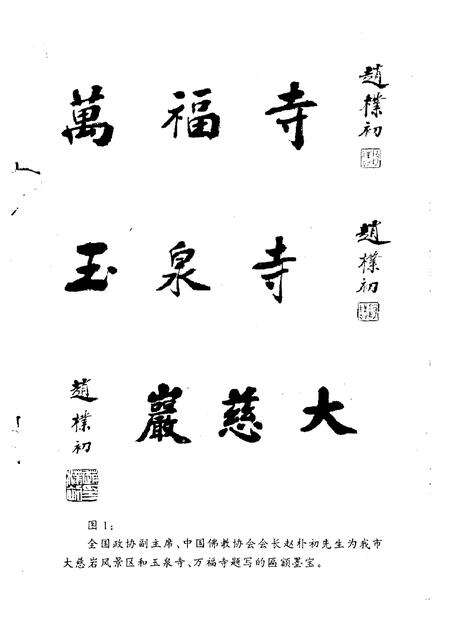 萬福寺
趙樸初
玉泉寺
趙樸初
大慈巖
趙樸初
图1:
全国政协副主席、中国佛教协会会长赵朴初先生为我市
大慈岩风景区和玉泉寺、万福寺题写的匾额墨宝。